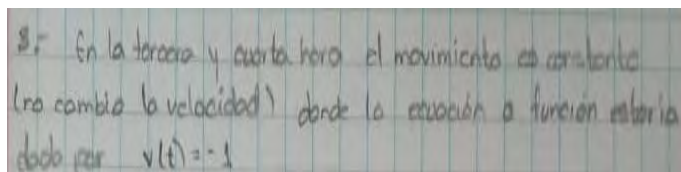 3.- En la tercera y cuarta hora el movimiento es constante
(no cambio la velocidad) donde la ecuación o función estaria
dado por v(t) = -1